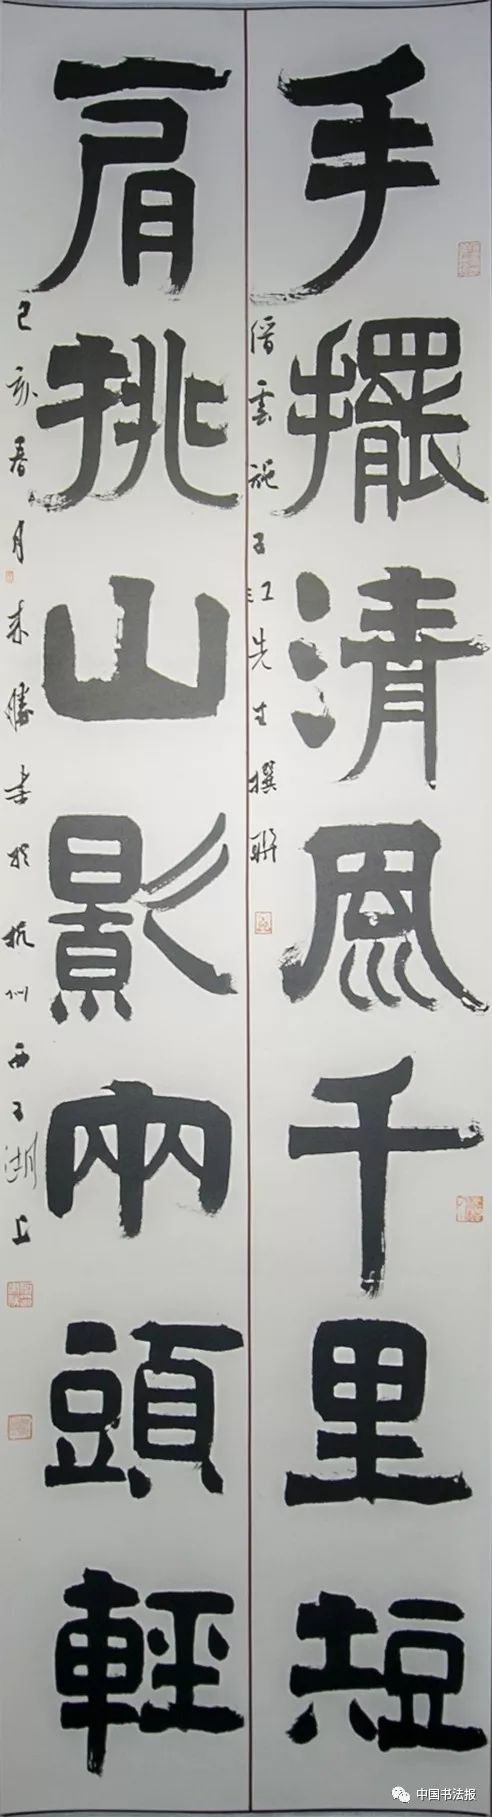 手擺清風千里短
縉雲施子江先生撰聯
肩挑山影兩頭輕
己亥春月勝書於杭州西子湖上
中国书法报